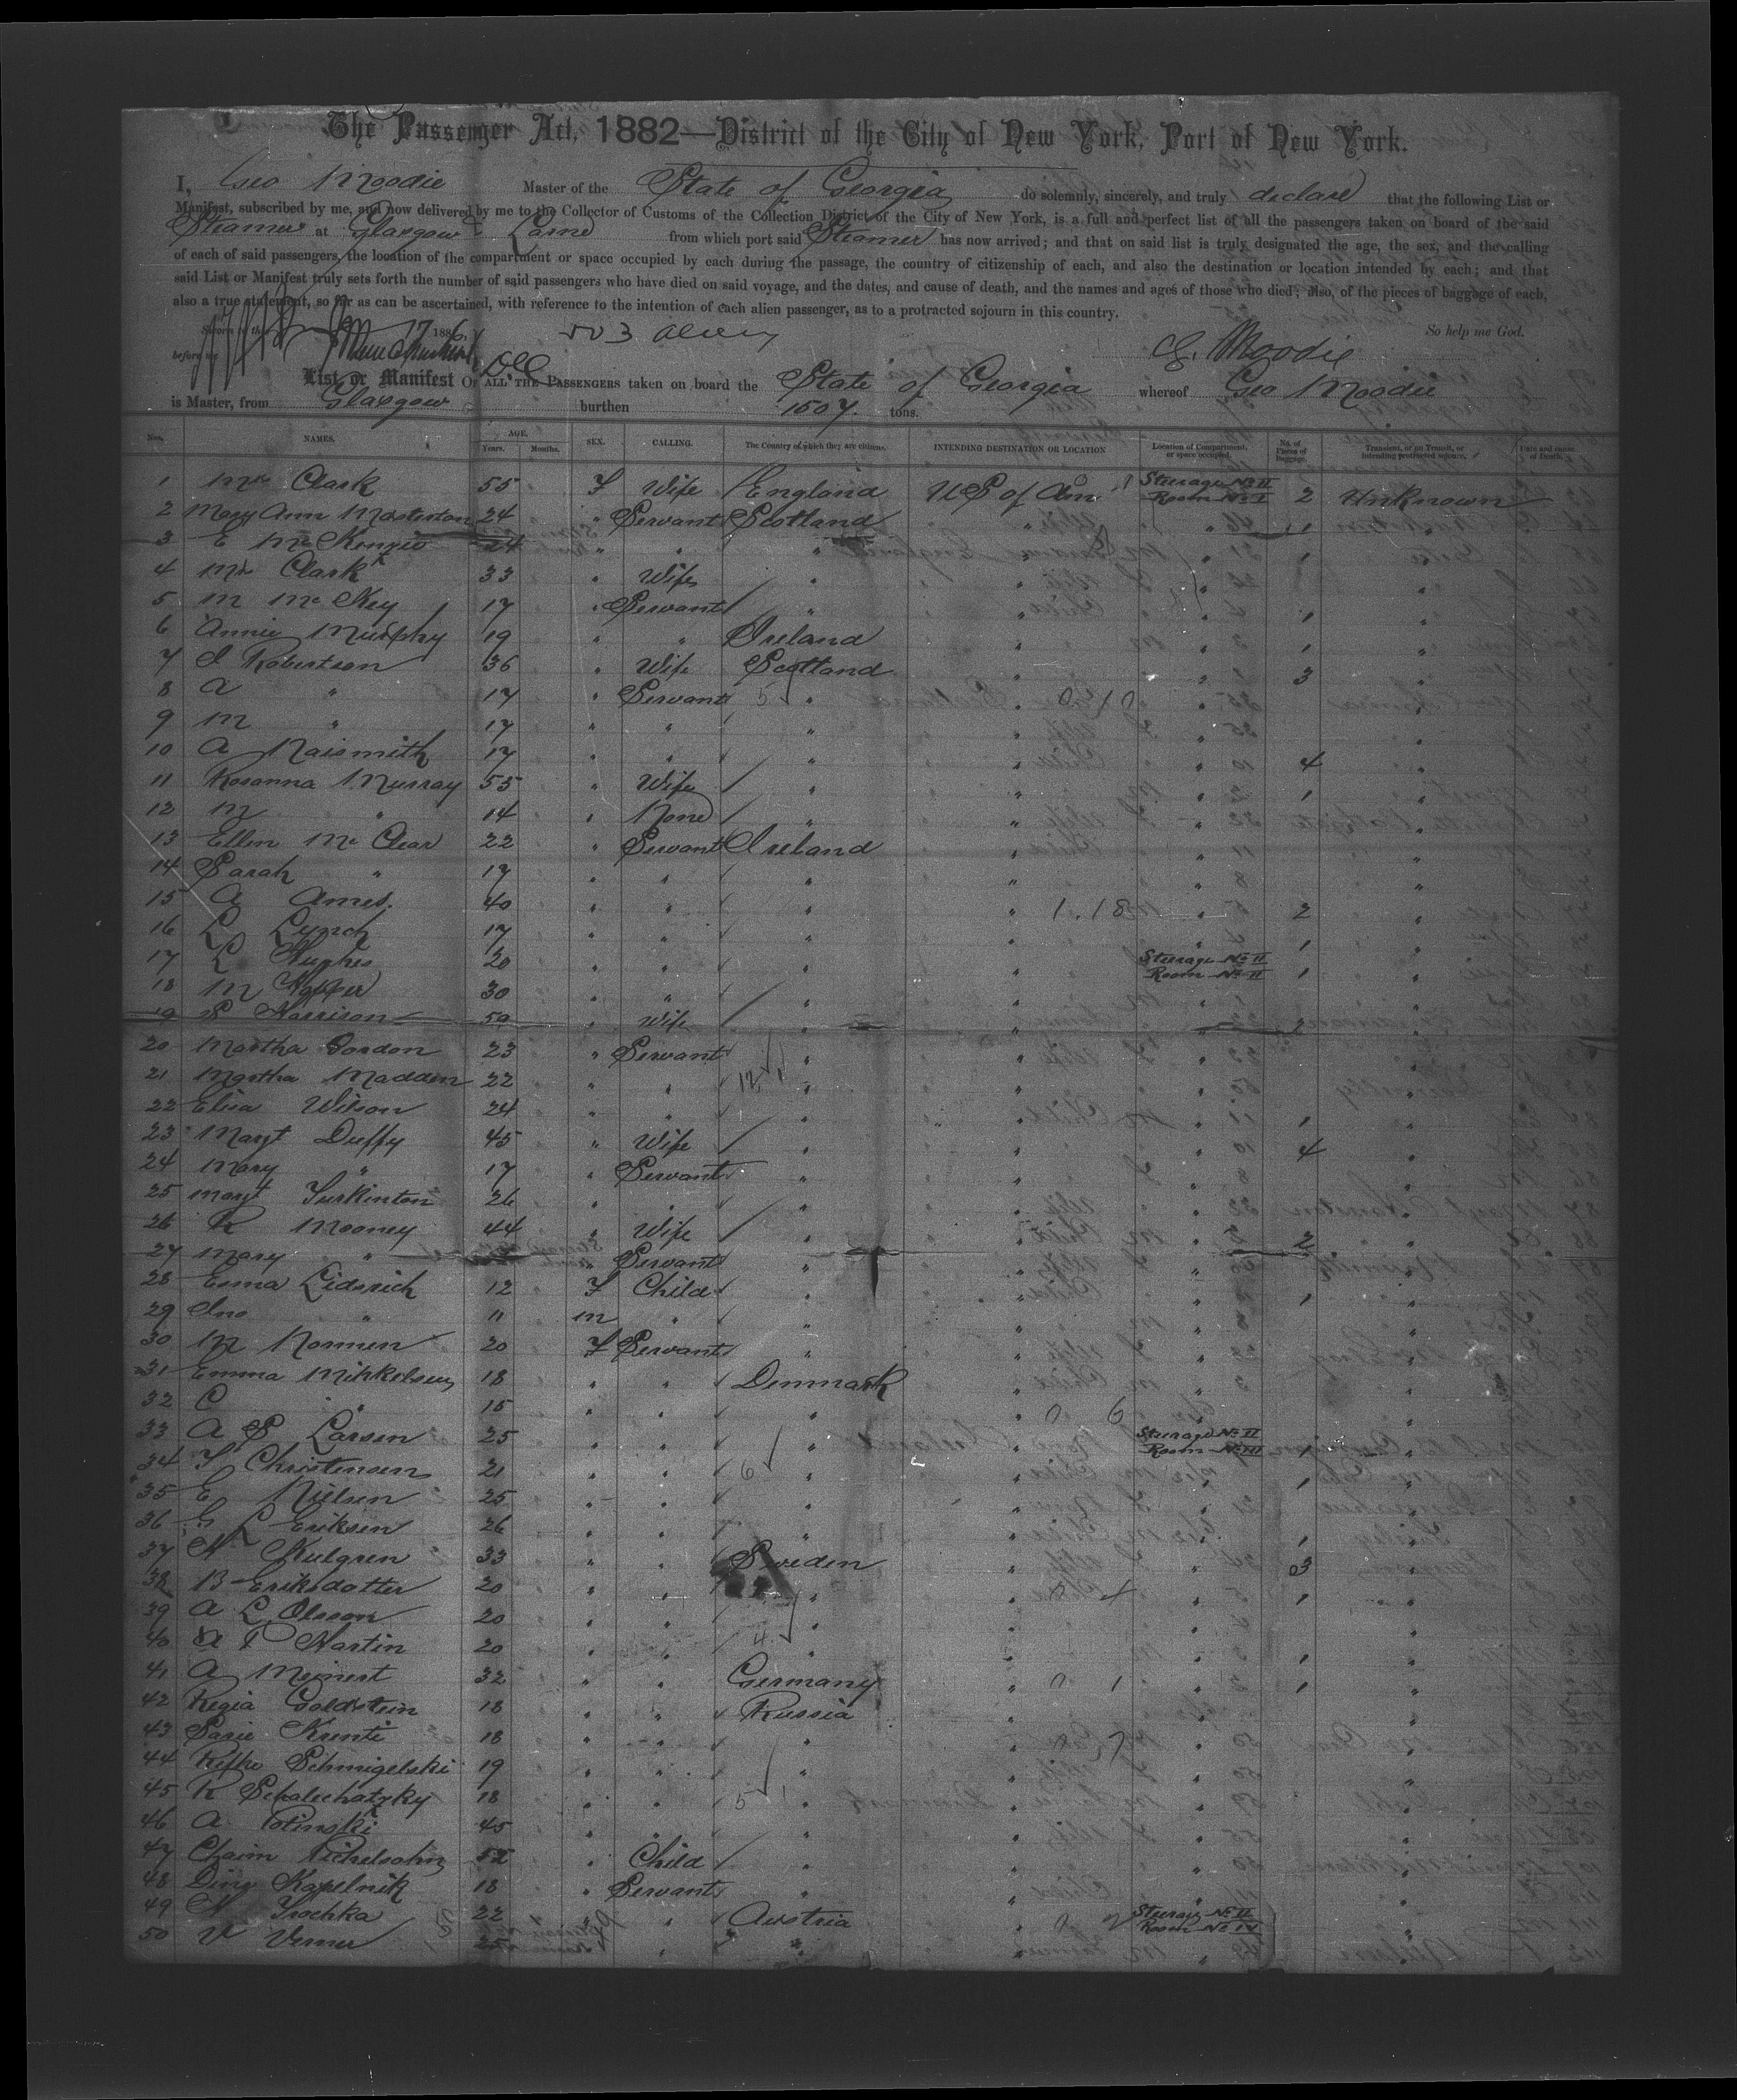 The Passenger Act, 1882—District of the City of New York, Port of New York.
I, Geo Moodie Master of the State of Georgia do solemnly, sincerely, and truly declare that the following List or
Manifest, subscribed by me, and now delivered by me to the Collector of Customs of the Collection District of the City of New York, is a full and perfect list of all the passengers taken on board of the said
Steamer at Glasgow & Larne from which port said Steamer has now arrived; and that on said list is truly designated the age, the sex, and the calling
of each of said passengers, the location of the compartment or space occupied by each during the passage, the country of citizenship of each, and also the destination or location intended by each; and that
said List or Manifest truly sets forth the number of said passengers who have died on said voyage, and the dates, and cause of death, and the names and ages of those who died; also, of the pieces of baggage of each,
also a true statement, so far as can be ascertained, with reference to the intention of each alien passenger, as to a protracted sojourn in this country.
Sworn to this 17 1886 So help me God.
before me G. Moodie
List or Manifest OF ALL THE PASSENGERS taken on board the State of Georgia whereof Geo Moodie
is Master, from Glasgow burthen 1507 tons.
Nos. NAMES. AGE. Years. Months. SEX. CALLING. The Country of which they are citizens. INTENDING DESTINATION OR LOCATION Location of Compartment, or space occupied. No. of Pieces of Baggage. Transient, or on Transit, or intending protracted sojourn. Date and cause of Death.
1 Mrs Clark 55 F Wife England US of Am Steerage No II Room No I 2 Unknown
2 Mary Ann Masterton 24 " Servant Scotland " " 1 "
3 E McKenzie 24 " " " " " 1 "
4 Mrs Clark 33 " Wife " " " "
5 M McKey 17 " Servant " " " 1 "
6 Annie Murphy 19 " " Ireland " " 1 "
7 I Robertson 36 " Wife Scotland " " 3 "
8 A " 17 " Servant 5 " " 0.10 " "
9 M " 17 " " " " " "
10 A Naismith 17 " " " " " 4 "
11 Rosanna Murray 55 " Wife " " " 1 "
12 M " 14 " None " " " "
13 Ellen McClear 22 " Servant Ireland " " "
14 Sarah " 17 " " " " " "
15 A Ames. 40 " " " " 1.18 " 2 "
16 L Lynch 17 " " " " " 1 "
17 L Hughes 20 " " " " Steerage No II Room No II 1 "
18 M 30 " " " " " "
19 S Harrison 50 " Wife " " " 2 "
20 Martha Gordon 23 " Servant " " " "
21 Martha Madden 22 " " 12 " " " "
22 Elisa Wilson 24 " " " " " 1 "
23 Margt Duffy 45 " Wife " " " 4 "
24 Mary " 17 " Servant " " " "
25 Margt Turkinton 26 " " " " " "
26 R Mooney 44 " Wife " " " 2 "
27 Mary " " Servant " " " "
28 Esma Lidsrich 12 F Child " " " 1 "
29 Jno " 11 M " " " " "
30 M Normen 20 F Servant " " " "
31 Emma Mikkelsen 18 " " Denmark " " "
32 C " 15 " " " " 0 6 " "
33 A S Larsen 25 " " " " Steerage No II Room No III 1 "
34 F Christensen 21 " " 6 " " " 1 "
35 E Nielsen 25 " " " " " "
36 G L Eriksen 26 " " " " " 1 "
37 N Kulgren 33 " " Sweden " " 3 "
38 B Eriksdotter 20 " " " " 0 4 " 1 "
39 A L Olsson 20 " " " " " "
40 A P Martin 20 " " 4 " " " 1 "
41 A Meinert 32 " " Germany " 0 1 " 1 "
42 Regia Goldstein 18 " " Russia " " "
43 Sarie Krenti 18 " " " " 0 7 " "
44 Rifke Schmigelski 19 " " " " " "
45 R Schalechatzky 18 " " 5 " " " "
46 A Polinski 45 " " " " " "
47 Chaim Michelsohn " Child " " " "
48 Dina Kapelnik 18 " Servant " " " "
49 N Trochka 22 " " Austria " 0 2 Steerage No II Room No IV "
50 V Verner 25 " " " " " "